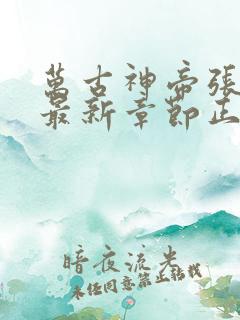 萬古神帝張
最新章節正
暗夜流光
未任同意禁止轉載